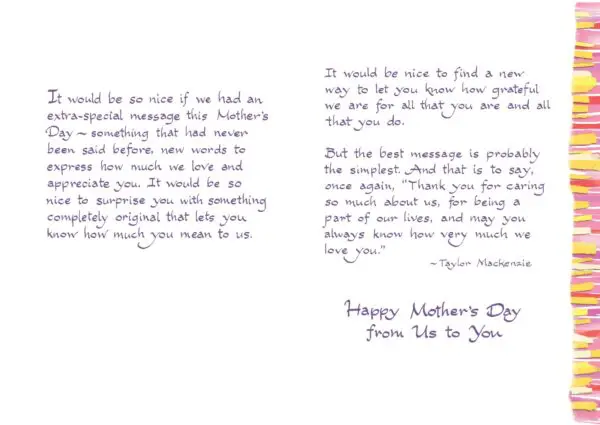 It would be so nice if we had an
extra-special message this Mother's
Day ~ something that had never
been said before, new words to
express how much we love and
appreciate you. It would be so
nice to surprise you with something
completely original that lets you
know how much you mean to us.
It would be nice to find a new
way to let you know how grateful
we are for all that you are and all
that you do.
But the best message is probably
the simplest. And that is to say,
once again, "Thank you for caring
so much about us, for being a
part of our lives, and may you
always know how very much we
love you."
~ Taylor Mackenzie
Happy Mother's Day
from Us to You